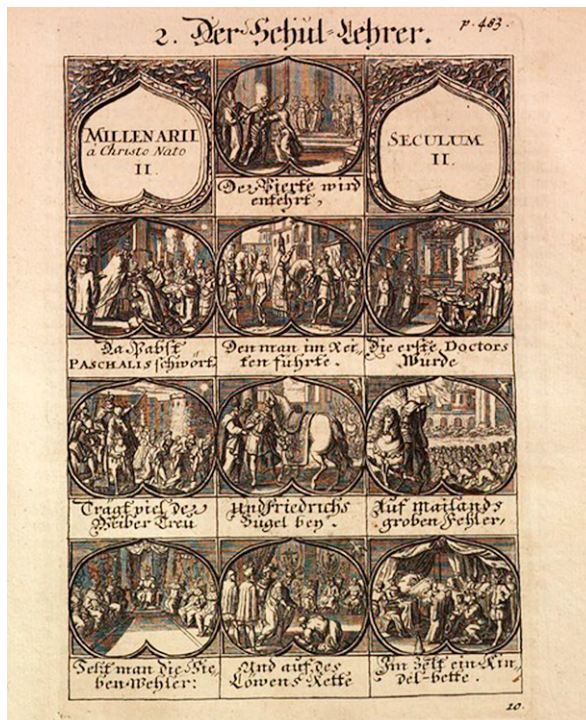 2. Der Schul-Lehrer.
p. 483.
MILLENARII
à Christo Nato
II.
SECULUM
II.
Der Vierte wird
entehrt,
Da Pabst
PASCHALIS schwört
Den man im Ket-
ten führte.
Die erste Doctors
Würde
Tragt viel der
Weiber Treu
Und Friedrichs
Bügel bey.
Auf Mailands
groben Fehler,
Setzt man die Sie-
ben-Wehler:
Und auf des
Löwens Kette
Im Zelt ein Kin-
del-bette.
20.